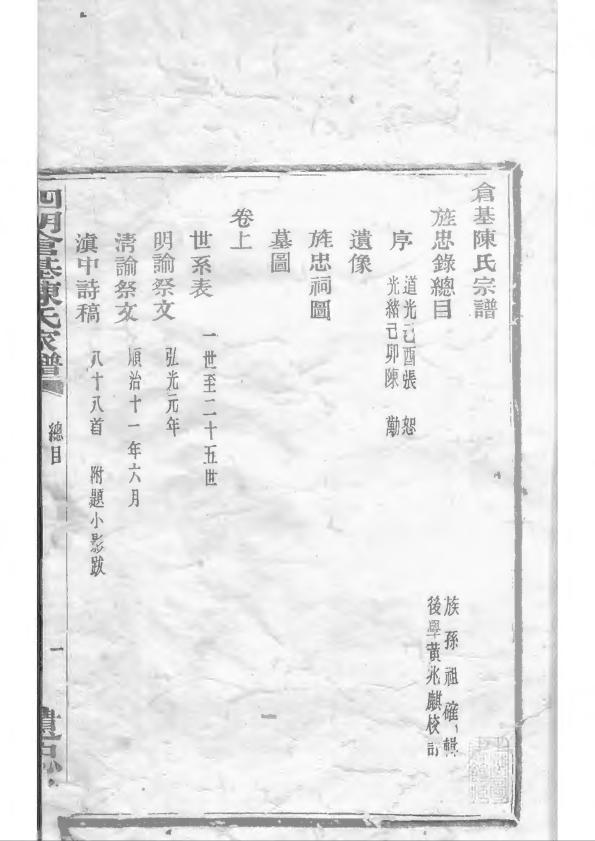 倉基陳氏宗譜
旌忠錄總目
族孫祖確輯
後學黃兆麒校訂
序
道光己酉張恕
光緒己卯陳勱
遺像
旌忠祠圖
墓圖
卷上
世系表 一世至二十五世
明諭祭文 弘光元年
淸諭祭文 順治十一年六月
滇中詩稿 八十八首 附題小影跋
四明倉基陳氏家譜
總目
一